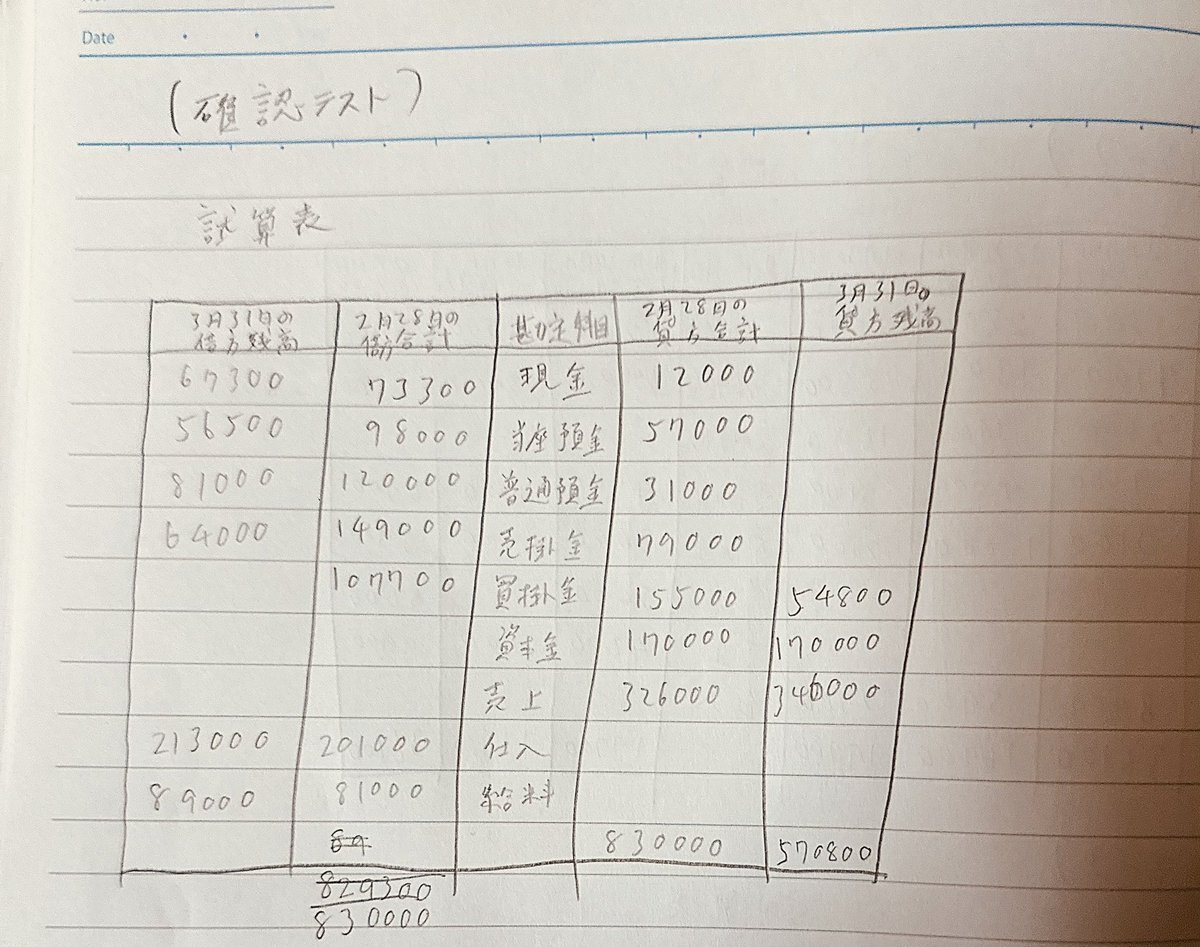 Date
(確認テスト)
試算表
3月31日の借方残高 2月28日の借方合計 勘定科目 2月28日の貸方合計 3月31日の貸方残高
67300 73300 現金 12000
56500 98000 当座預金 57000
81000 120000 普通預金 31000
64000 149000 売掛金 79000
107700 買掛金 155000 54800
資本金 170000 170000
売上 326000 346000
213000 201000 仕入
89000 81000 給料
89 830000 570800
829300
830000